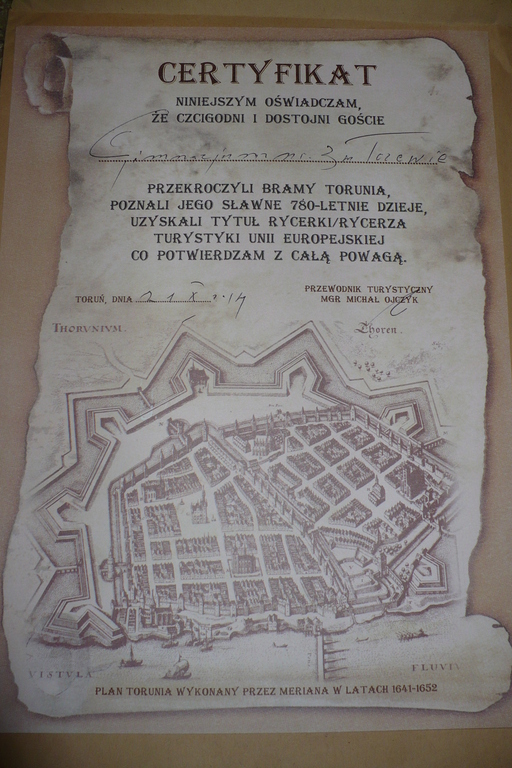 CERTYFIKAT
NINIEJSZYM OŚWIADCZAM,
ŻE CZCIGODNI I DOSTOJNI GOŚCIE
Gimnazjum nr 3 w Tczewie
PRZEKROCZYLI BRAMY TORUNIA,
POZNALI JEGO SŁAWNE 780-LETNIE DZIEJE,
UZYSKALI TYTUŁ RYCERKI/RYCERZA
TURYSTYKI UNII EUROPEJSKIEJ
CO POTWIERDZAM Z CAŁĄ POWAGĄ.
TORUŃ, DNIA 21 X 14
PRZEWODNIK TURYSTYCZNY
MGR MICHAŁ OJCZYK
THORUNIUM.
Thoren.
VISTULA
FLUVIU
PLAN TORUNIA WYKONANY PRZEZ MERIANA W LATACH 1641-1652